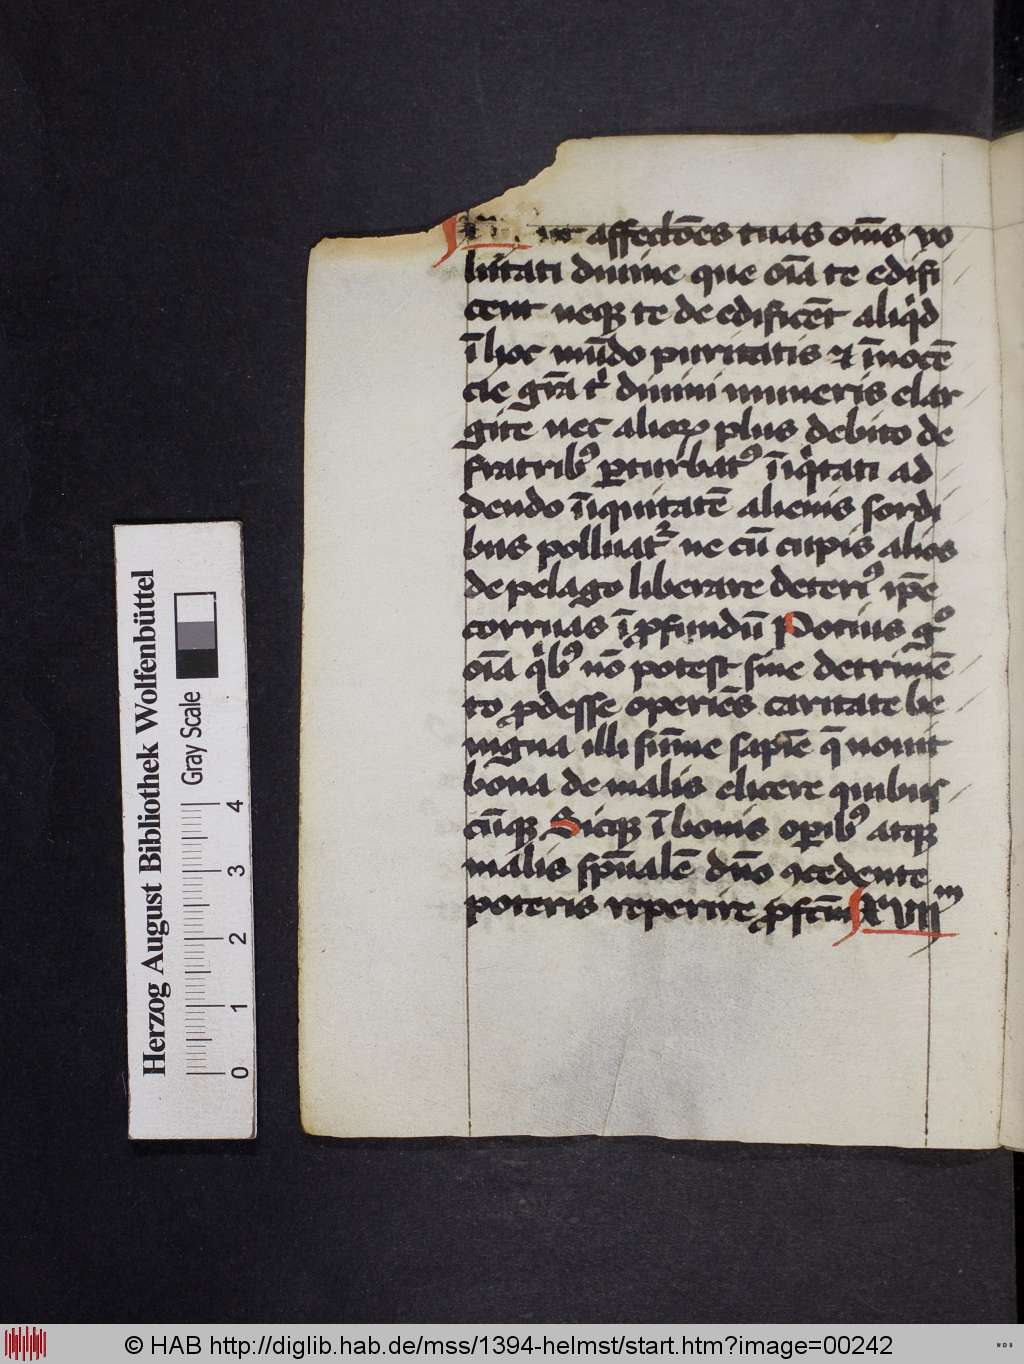 affectōes tuas om̄s vo
lūtati diuine que oīa te edifi
cent neqꝫ te de edificēt aliqͥd
ī hoc mūdo puritatis ⁊ īnocē
cie gr̄a tͥ diuini muneris elar
gite nec alioꝝ plus debito de
fratribꝰ ꝑturbatꝰ īiqͥtati ad
dendo īiquitatē alienis sordi
bus polluatꝛ ne cū cupis alios
de pelago liberare deteriꝰ ip̄e
corruas ī ꝓfundū Potius gͦ
oīa qͥbꝰ nō potest sine detrimē
to ꝓdesse operiēs caritate be
nigna illi sūme sapīe q̄ nouit
bona de malis elicere quibus
cūqꝫ Sicqꝫ ī bonis oꝑibꝰ atqꝫ
malis sp̄ualē dn̄o ꝯcedente
poteris reperire ꝓfc̄m XVIIᵐ
Herzog August Bibliothek Wolfenbüttel
Gray Scale
0 1 2 3 4
© HAB http://diglib.hab.de/mss/1394-helmst/start.htm?image=00242